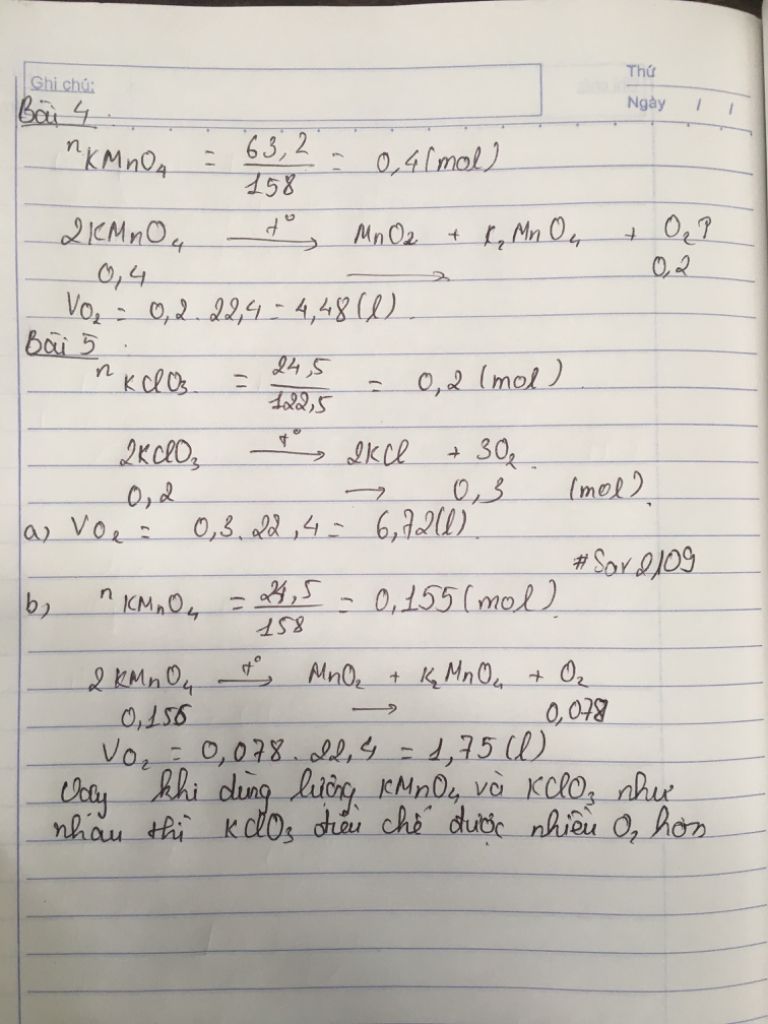 Thứ
Ghi chú:
Ngày / /
Bài 4
nKMnO₄ = 63,2/158 = 0,4 (mol)
2KMnO₄ —t°→ MnO₂ + K₂MnO₄ + O₂↑
0,4 → 0,2
VO₂ = 0,2 . 22,4 = 4,48 (l).
Bài 5
nKClO₃ = 24,5/122,5 = 0,2 (mol)
2KClO₃ —t°→ 2KCl + 3O₂
0,2 → 0,3 (mol).
a) VO₂ = 0,3 . 22,4 = 6,72 (l).
#Sar2109
b) nKMnO₄ = 24,5/158 = 0,155 (mol)
2KMnO₄ —t°→ MnO₂ + K₂MnO₄ + O₂
0,156 → 0,078
VO₂ = 0,078 . 22,4 = 1,75 (l)
Vậy khi dùng lượng KMnO₄ và KClO₃ như
nhau thì KClO₃ điều chế được nhiều O₂ hơn